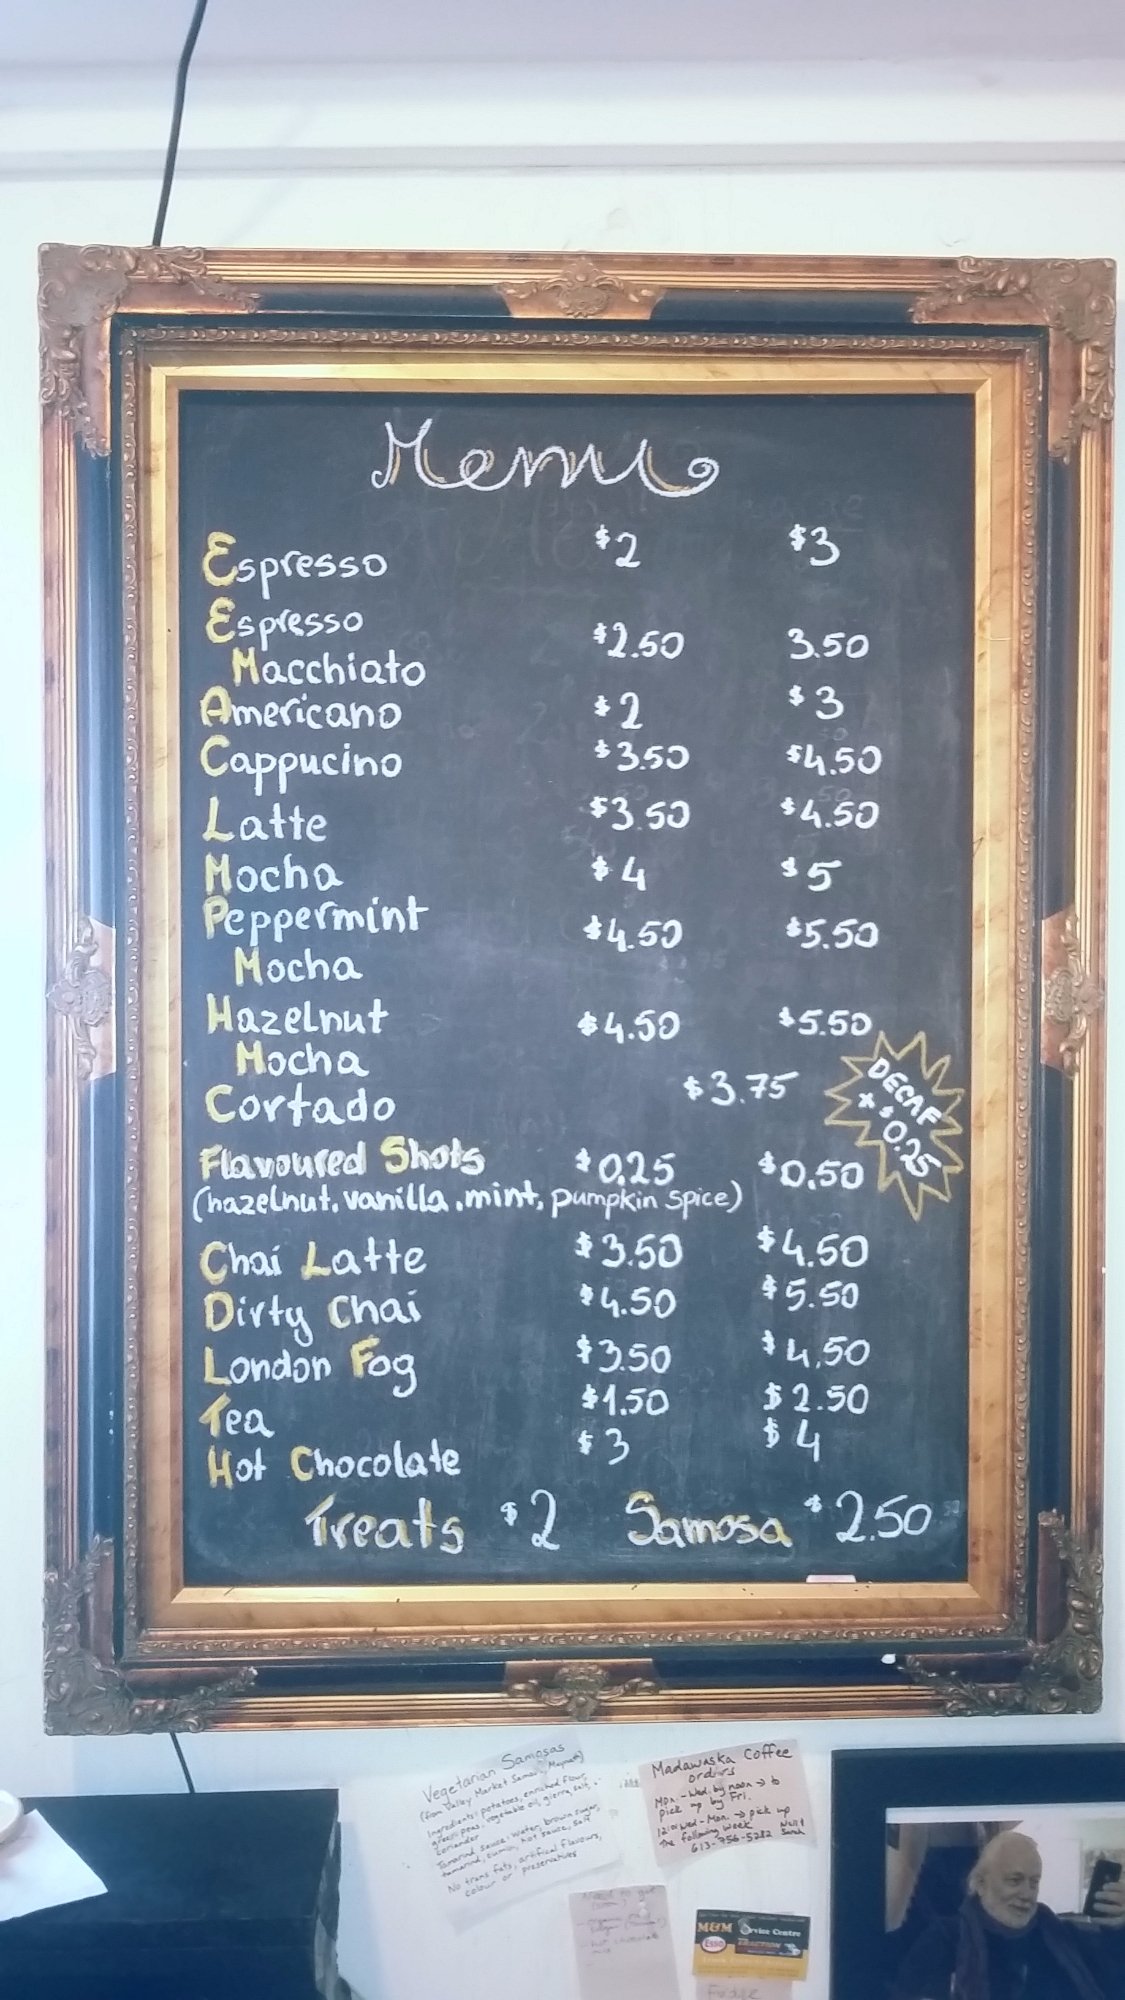 Menu
Espresso $2 $3
Espresso
Macchiato $2.50 3.50
Americano $2 $3
Cappucino $3.50 $4.50
Latte $3.50 $4.50
Mocha $4 $5
Peppermint
Mocha $4.50 $5.50
Hazelnut $4.50 $5.50
Mocha
Cortado $3.75
DECAF
+ $0.25
Flavoured Shots $0.25 $0.50
(hazelnut, vanilla, mint, pumpkin spice)
Chai Latte $3.50 $4.50
Dirty Chai $4.50 $5.50
London Fog $3.50 $4.50
Tea $1.50 $2.50
Hot Chocolate $3 $4
Treats $2 Samosa $2.50
Vegetarian Samosas
(from Valley Market Samosa, Maynooth)
Ingredients: potatoes, enriched flour,
green peas, vegetable oil, salt,
coriander
Tamarind sauce: water, brown sugar,
tamarind, cumin, hot sauce, salt
No trans fats, artificial flavours,
colour or preservatives
Madawaska Coffee
orders
Mon. - Wed. by noon → to
pick up by Fri.
Wed - Mon. → pick up
the following week
613-756-5282
Need to get
hot chocolate
M&M Service Centre
Esso TRACTION